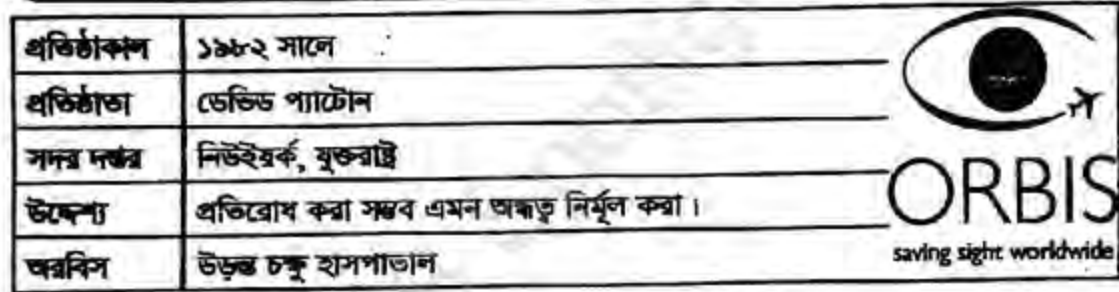 প্রতিষ্ঠাকাল ১৯৮২ সালে
প্রতিষ্ঠাতা ডেভিড প্যাটোন
সদর দপ্তর নিউইয়র্ক, যুক্তরাষ্ট্র
উদ্দেশ্য প্রতিরোধ করা সম্ভব এমন অন্ধত্ব নির্মূল করা।
অরবিস উড়ন্ত চক্ষু হাসপাতাল
ORBIS
saving sight worldwide